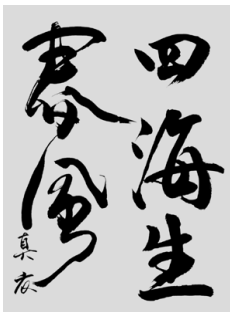 四海生
春風
真友